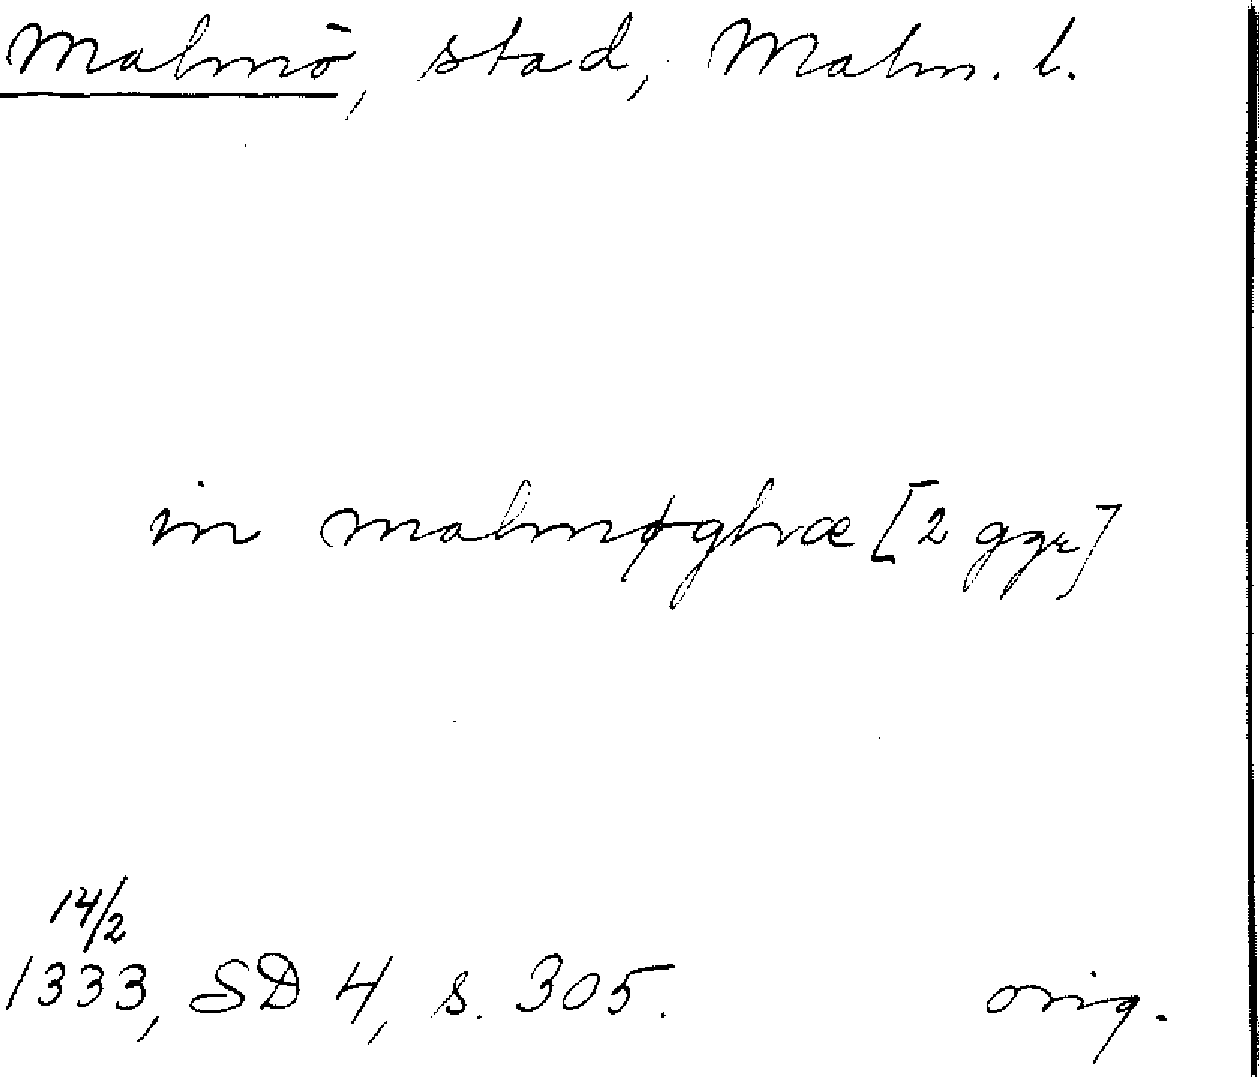 Malmö, stad, Malm. l.
in malmøghæ [2 ggr]
14/2
1333, SD 4, s. 305. orig.